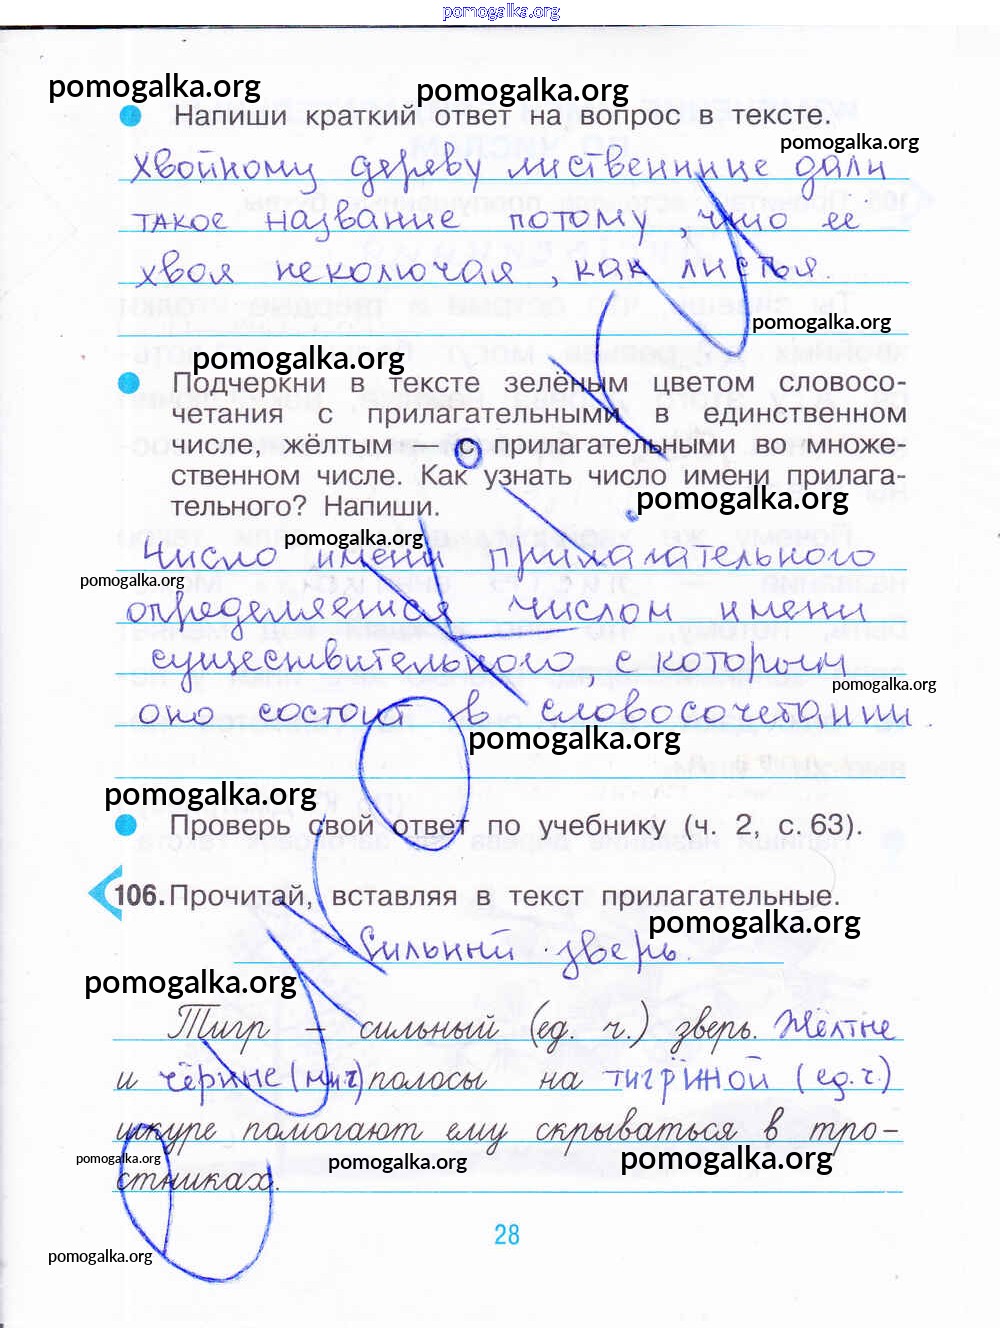 pomogalka.org
pomogalka.org
pomogalka.org
Напиши краткий ответ на вопрос в тексте.
pomogalka.org
Хвойному дереву лиственнице дали
такое название потому, что ее
хвоя неколючая, как листья.
pomogalka.org
pomogalka.org
Подчеркни в тексте зелёным цветом словосо-
четания с прилагательными в единственном
числе, жёлтым — с прилагательными во множе-
ственном числе. Как узнать число имени прилага-
тельного? Напиши.
pomogalka.org
pomogalka.org
Число имени прилагательного
pomogalka.org
определяется числом имени
существительного, с которым
pomogalka.org
оно состоит в словосочетании
pomogalka.org
pomogalka.org
Проверь свой ответ по учебнику (ч. 2, с. 63).
106. Прочитай, вставляя в текст прилагательные.
pomogalka.org
Сильный зверь.
pomogalka.org
Тигр – сильный (ед. ч.) зверь. Жёлтые
и чёрные (мн.ч) полосы на тигриной (ед.ч.)
шкуре помогают ему скрываться в тро-
pomogalka.org
pomogalka.org
pomogalka.org
стниках.
28
pomogalka.org